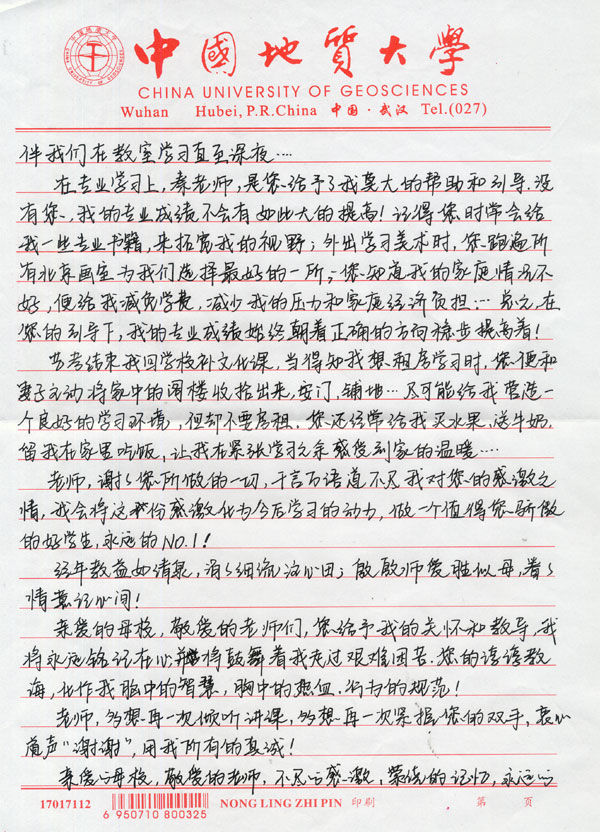 中國地質大學
CHINA UNIVERSITY OF GEOSCIENCES
Wuhan Hubei, P.R.China 中国·武汉 Tel.(027)
伴我们在教室学习直至深夜……
在专业学习上,秦老师,是您给予了我莫大的帮助和引导.没
有您,我的专业成绩不会有如此大的提高!记得您时常会给
我一些专业书籍,来拓宽我的视野;外出学习美术时,您跑遍所
有北京画室为我们选择最好的一所;您知道我的家庭情况不
好,便给我减免学费,减少我的压力和家庭经济负担;…总之,在
您的引导下,我的专业成绩始终朝着正确的方向稳步提高着!
当考结束我回学校补文化课,当得知我想租房学习时,您便和
妻子主动将家中的阁楼收拾出来,安门,铺地…尽可能给我营造一
个良好的学习环境,但却不要房租.您还经常给我买水果,送牛奶.
留我在家里吃饭,让我在紧张学习之余感受到家的温暖……
老师,谢谢您所做的一切,千言万语道不尽我对您的感激之
情,我会将这份感激化为今后学习的动力,做一个值得您骄傲
的好学生,永远的NO.1!
经年教益如清泉,涓涓细流沁心田;殷殷师爱胜似母,眷眷
情意记心间!
亲爱的母校,敬爱的老师们,您给予我的关怀和教导,我
将永远铭记在心并将鼓舞着我走过艰难困苦.您的谆谆教
诲,化作我脑中的智慧,胸中的热血,行为的规范!
老师,多想再一次倾听讲课,多想再一次紧握您的双手,衷心
道声“谢谢”,用我所有的真诚!
亲爱的母校,敬爱的老师,不尽的感激,萦绕的记忆,永远的
17017112 6 950710 800325 NONG LING ZHI PIN 印刷 第 页